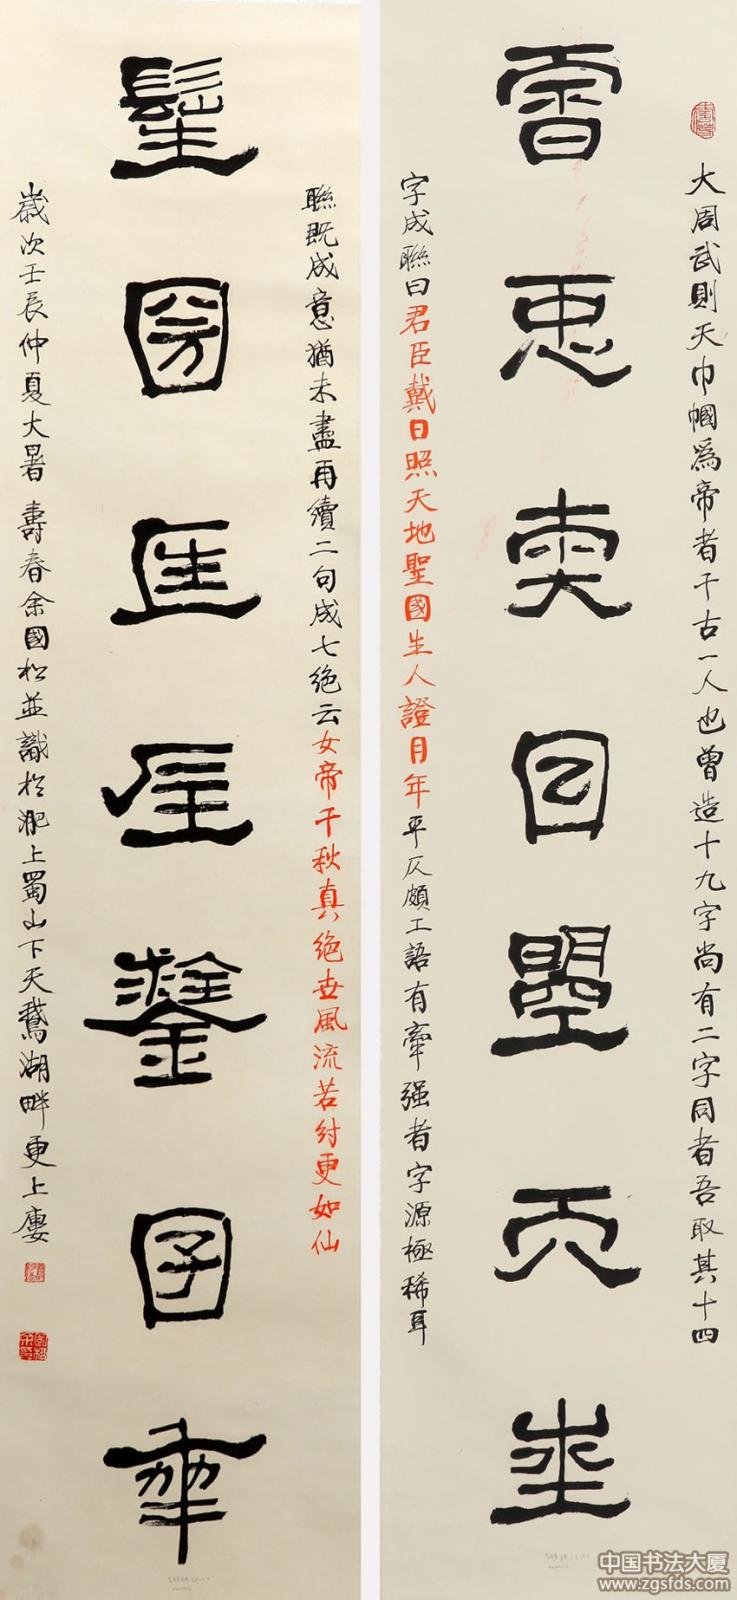 大周武則天巾幗爲帝者千古一人也曾造十九字尚有二字同者吾取其十四
𢘑 𡆠曌𠀑埊
字成聯曰君臣戴日照天地聖國生人證月年平仄頗工語有牽强者字源極稀耳
聯既成意猶未盡再續二句成七絶云女帝千秋真絶世風流若紂更如仙
圀 囝𠡦
歲次壬辰仲夏大暑壽春余國松並識於淝上蜀山下天鵝湖畔更上廔
中国书法大厦
www.zgsfds.com